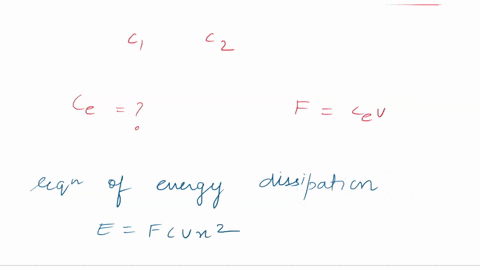 c1 c2
Ce = ?
F = Cev
eqn of energy dissipation
E = Fcvx2